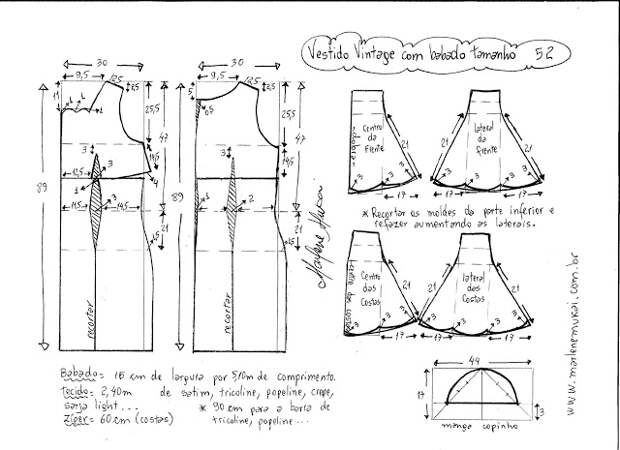 Vestido Vintage com babado tamanho 52
30
9,5
12,5
2,5
11
1
25,5
47
14,5
3
4
12,5
3
14,5
14,5
89
21
recortar
30
9,5
12,5
2,5
5
25,5
47
14,5
3
2
89
21
2,5
recortar
Marlene Mukai
Centro da Frente
21
3
17
lateral da Frente
21
21
3
3
17
* Recortar os moldes da parte inferior e
refazer aumentando as laterais.
centro das costas
Centro das Costas
21
3
17
lateral das Costas
21
21
3
3
17
www.marlenemukai.com.br
49
17
3
manga copinho
Babado = 15 cm de largura por 5,10m de comprimento.
Tecido = 2,40m de cetim, tricoline, popeline, crepe,
sarja light ...
* 90 cm para a barra de
tricoline, popeline...
Zíper = 60cm (costas)